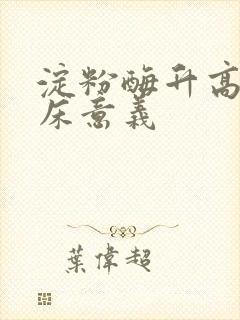 淀粉酶升高
床意義
葉偉超